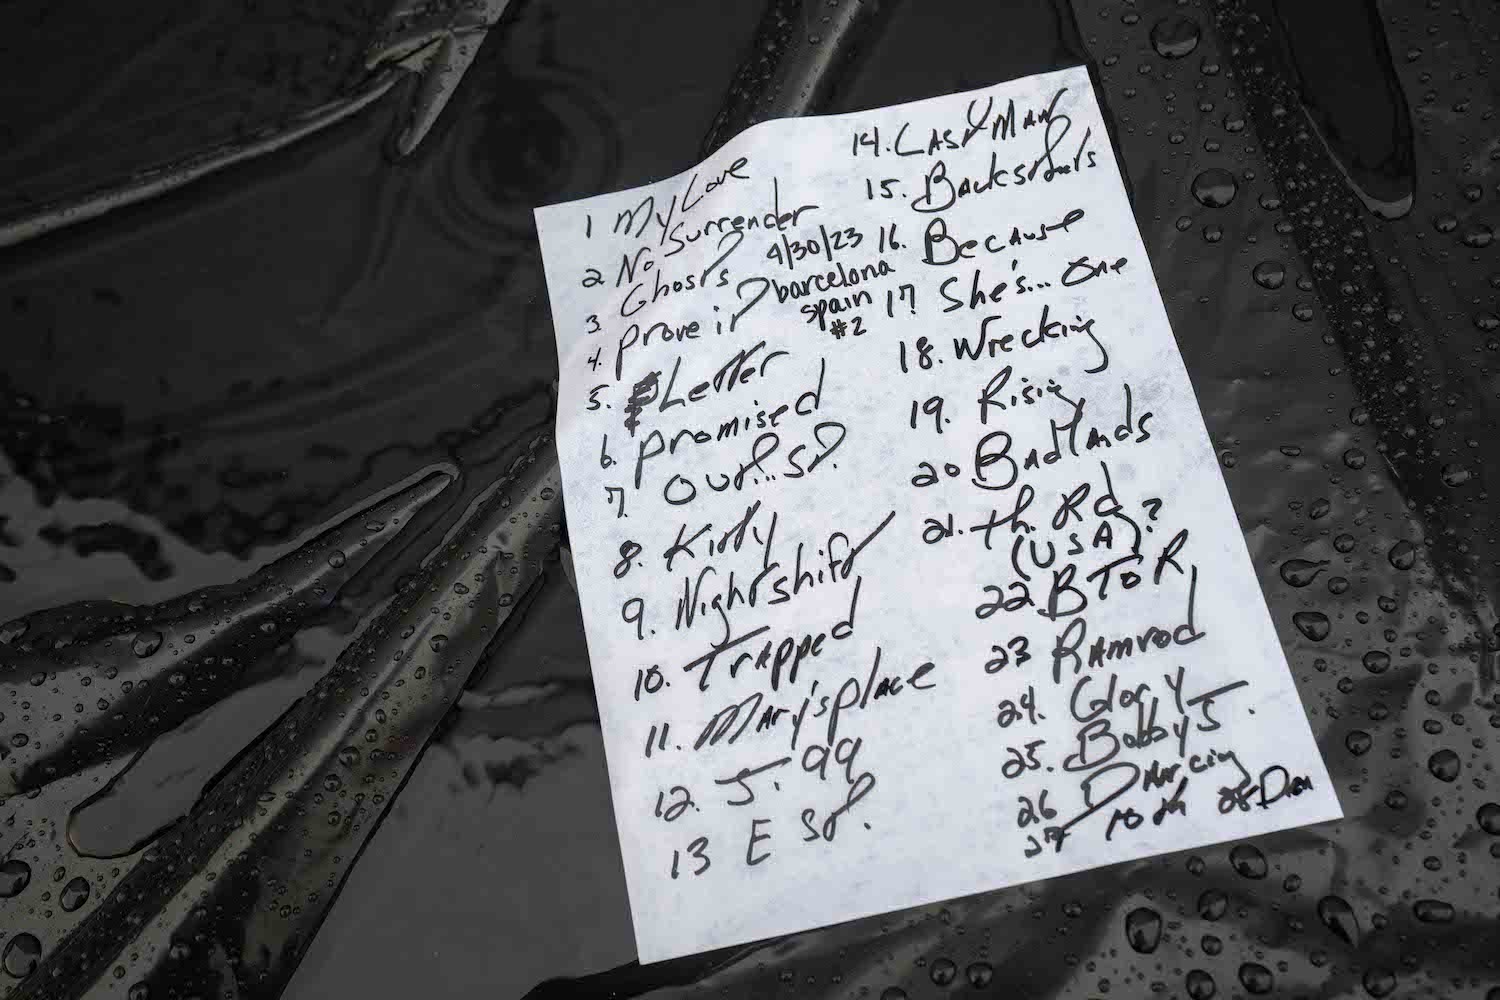 1 My Love
2 No Surrender
3. Ghosts
4. prove it
4/30/23
barcelona
spain
#2
5. Letter
6. promised
7. Out..St.
8. Kitty
9. Nightshift
10. Trapped
11. Mary's place
12. J. 99
13 E St.
14. Last Man
15. Backstreets
16. Because
17 She's... One
18. Wrecking
19. Rising
20 Badlands
21. th. Rd
(USA)?
22 BTOR
23 Ramrod
24. Glory
25. Bobby J.
26 Dancing
27 10th 28 Drm